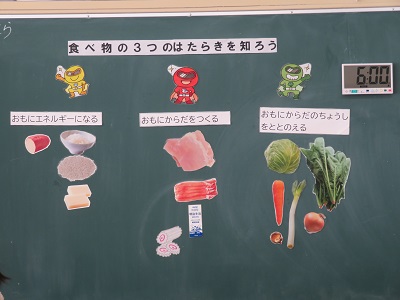 食べ物の３つのはたらきを知ろう
6:00
おもにエネルギーになる
おもにからだをつくる
おもにからだのちょうし
をととのえる